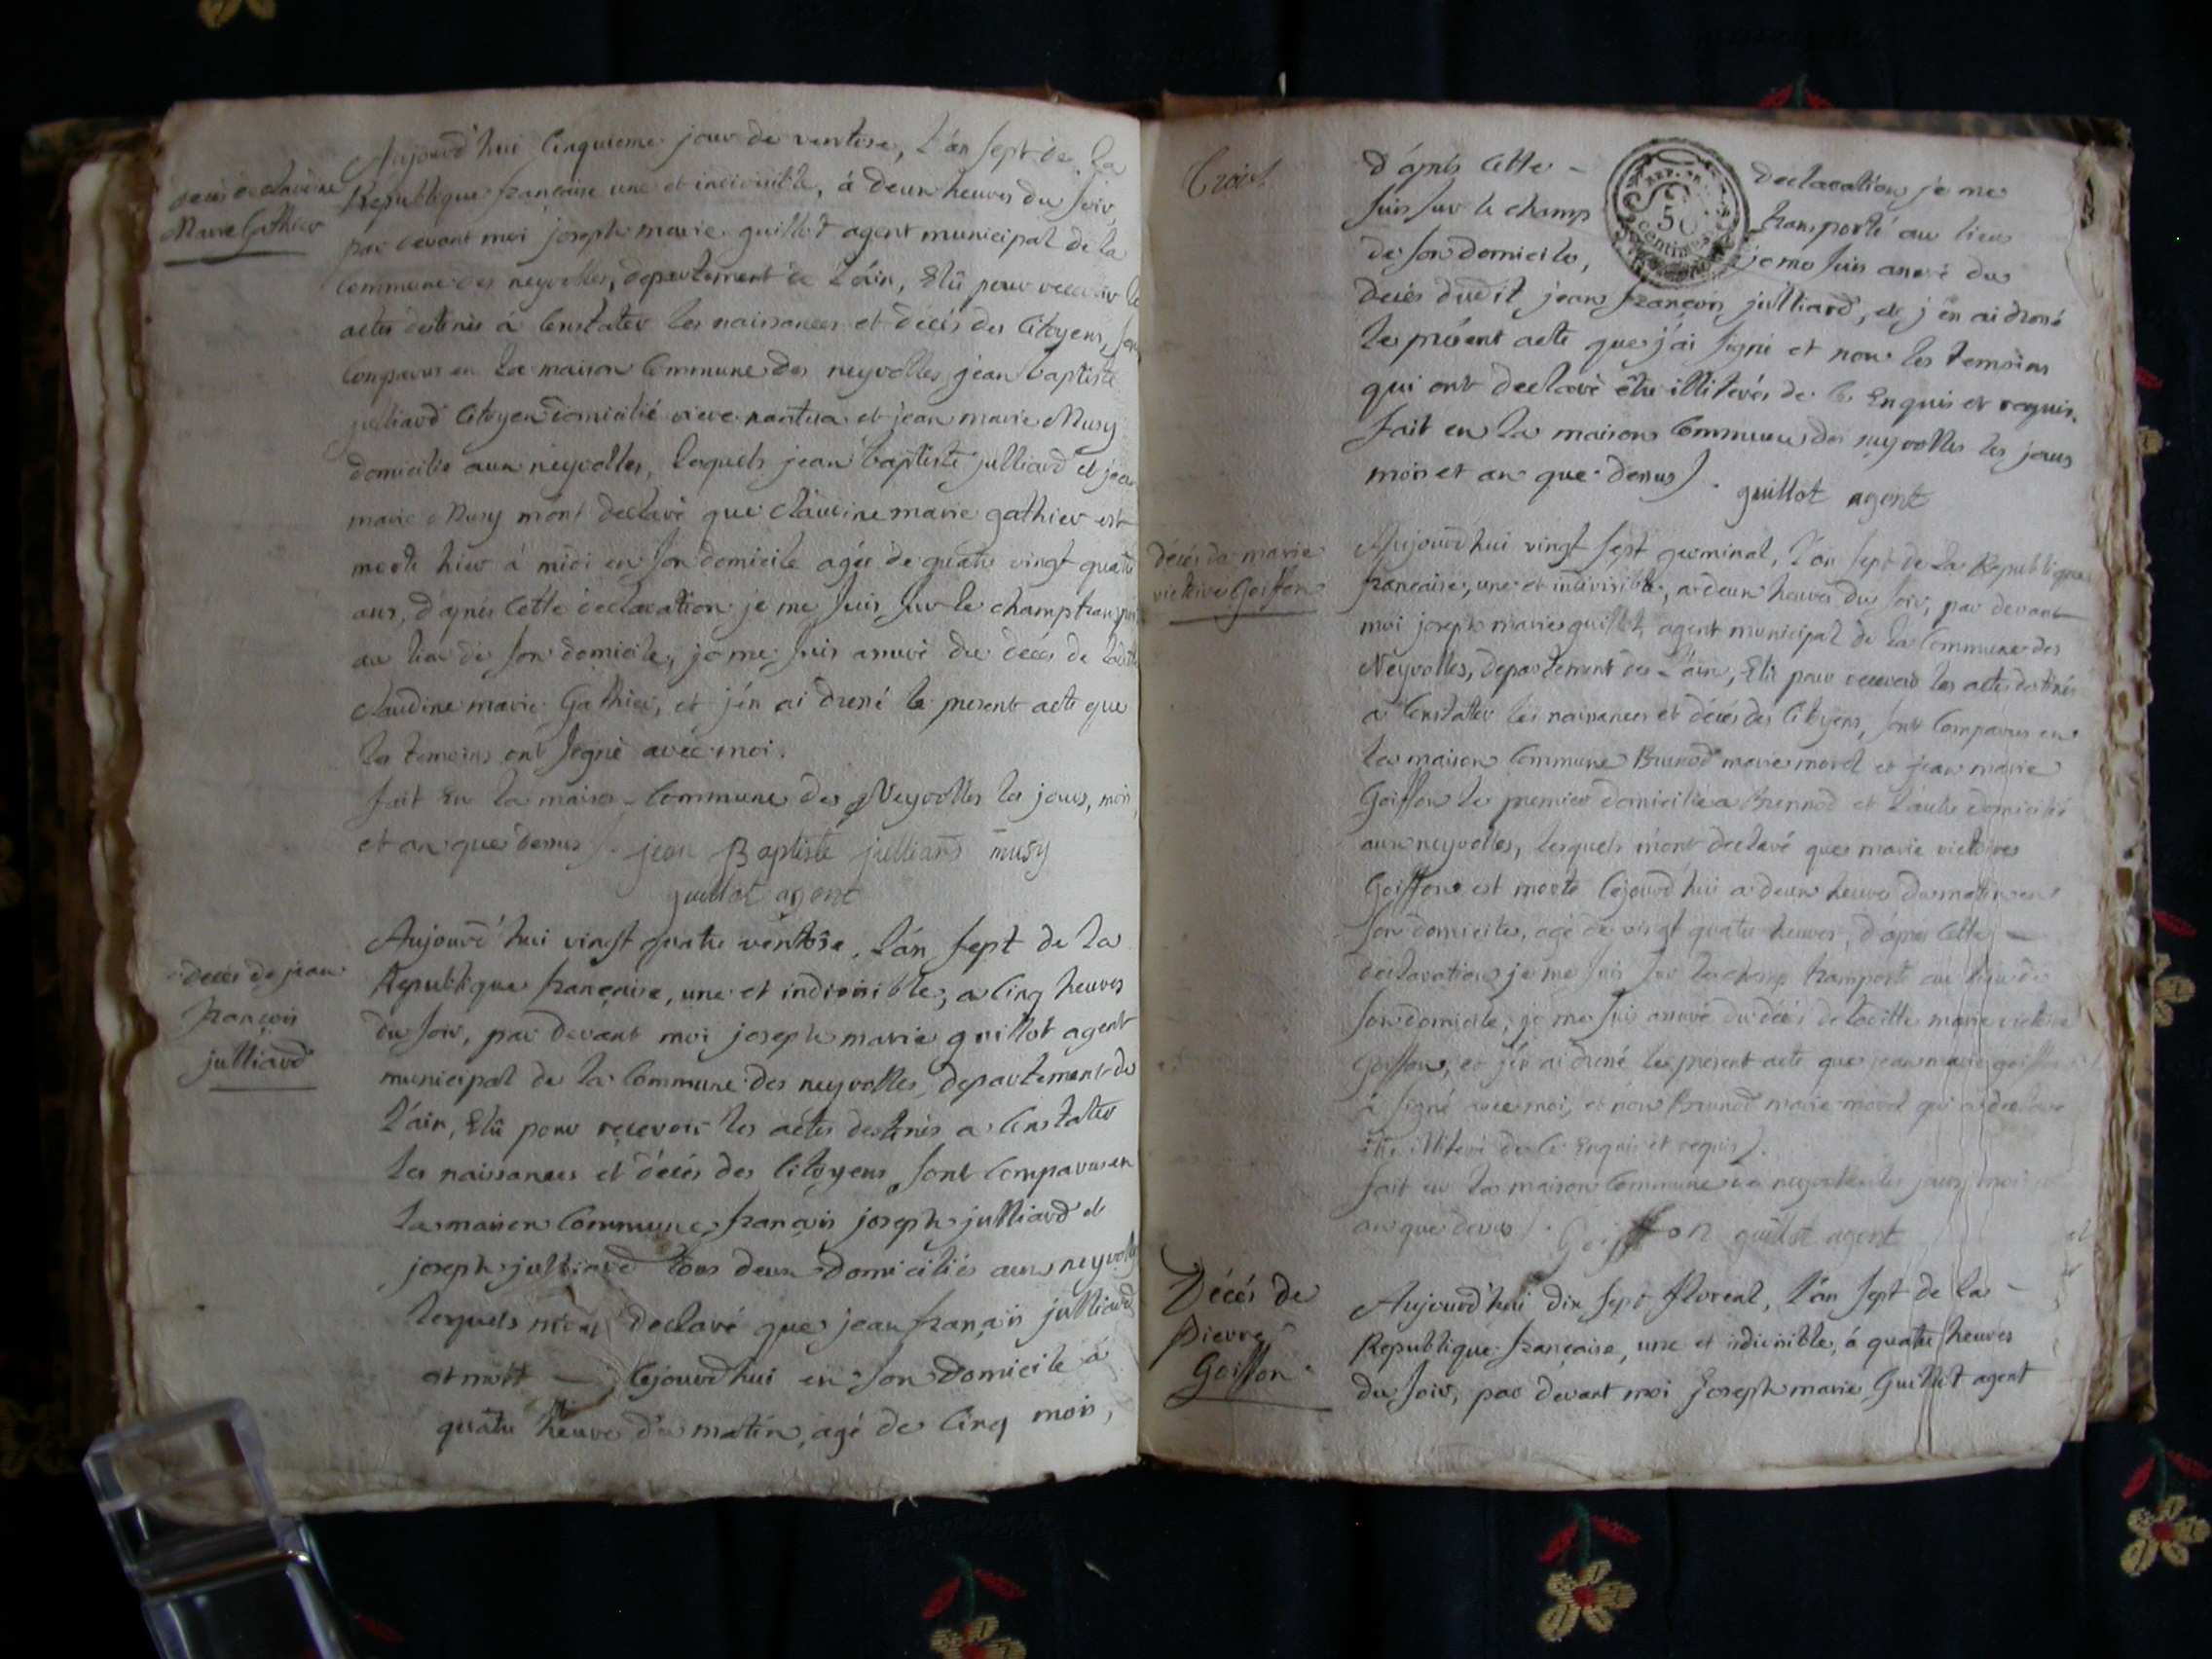 décès de claudine
Marie Gathier
Aujourd'hui Cinquieme jour de ventose, L'an Sept de La
Republique francaise une et indivisible, à deux heures du Soir,
par devant moi joseph marie guillot agent municipal de la
Commune des neyrolles, departement de L'ain, Elû pour recevoir les
actes destinés à Constater les naissances et décès des Citoyens, Sont
Comparus en La maison Commune des neyrolles jean baptiste
julliard Citoyen domicilié nantua et jean marie Musy
domicilié aux neyrolles, Lesquels jean baptiste julliard et jean
marie Musy mont declaré que claudine marie gathier est
morte hier à midi en Son domicile agée de quatre vingt quatre
ans, d'après Cette declaration je me Suis Sur le champ transporté
au lieu de Son domicile, je me Suis assuré du décès de ladite
claudine marie Gathier, et j'en ai dressé le present acte que
les temoins ont Signé avec moi.
fait En la maison Commune des Neyrolles les jour, mois
et an que dessus. jean Baptiste julliard musy
guillot agent
décès de jean
françois
julliard
Aujourd'hui vingt quatre ventôse, L'an Sept de La
Republique française, une et indivisible, a Cinq heures
du Soir, par devant moi joseph marie guillot agent
municipal de La Commune des neyrolles, departement de
L'ain, Elû pour recevoir les actes destinés a Constater
les naissances et décés des Citoyens Sont Comparus en
la maison Commune françois joseph julliard et
joseph julliard tous deux domiciliés aux neyrolles
Lesquels mont declaré que jean françois julliard
est mort Cejourd'hui en Son domicile à
quatre heure du matin, agé de Cinq mois,
Trois
d'après Cette declaration je me
Suis Sur le champ transporté au lieu
de Son domicile, je me Suis assuré du
50
centimes
decés dudit jean françois julliard, et j'en ai dressé
le présent acte que j'ai Signé et non les temoins
qui ont declaré être illiterés de Ce Enquis et requis.
fait en la maison Commune des neyrolles les jour
mois et an que dessus. guillot agent
décés de marie
victoire Goiffon
Aujourd'hui vingt Sept germinal, L'an Sept de La Republique
francaise, une et indivisible, a deux heures du Soir, par devant
moi joseph marie guillot agent municipal de la Commune des
Neyrolles, departement de L'ain, Elû pour recevoir les actes destinés
a Constater les naissances et décès des Citoyens, Sont Comparus en
la maison Commune Brunod marie morel et jean marie
Goiffon le premier domicilié a Brennod et l'autre domicilié
aux neyrolles, lesquels m'ont declaré que marie victoire
Goiffon est morte Cejourd'hui a deux heures du matin en
Son domicile, agé de vingt quatre heures, d'après Cette
déclaration je me Suis Sur le champ transporté au lieu de
Son domicile, je me Suis assuré du décès deladitte marie victoire
Goiffon, et j'en ai dressé le present acte que jean marie goiffon
à Signé avec moi, et non Brunod marie morel qui a declaré
être illiteré de Ce Enquis et requis.
fait en la maison Commune des neyrolles les jour, mois et
an que dessus. Goiffon guillot agent
Décés de
Pierre
Goiffon
Aujourd'hui dix Sept floreal, L'an Sept de la
Republique francaise, une et indivisible, à quatre heures
du Soir, par devant moi Joseph marie Guillot agent